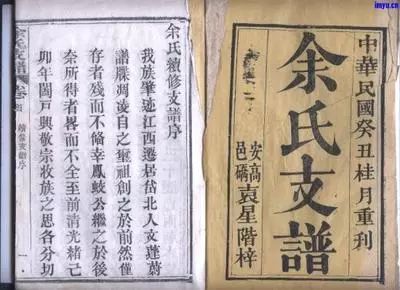 中華民國癸丑桂月重刊
余氏支譜
安高
邑礄袁星階梓
余氏續修支譜序
我族肇迹江西遷居岳北人文蓬蔚
譜牒凋淩自之璽祖創之於前然僅
存者殘而不脩幸鳳岐公繼之於後
奈所得者畧而不全至前清光緒己
卯年闔戸興敬宗收族之思各分切
余氏支譜
續修支譜序
一
imyu.cn